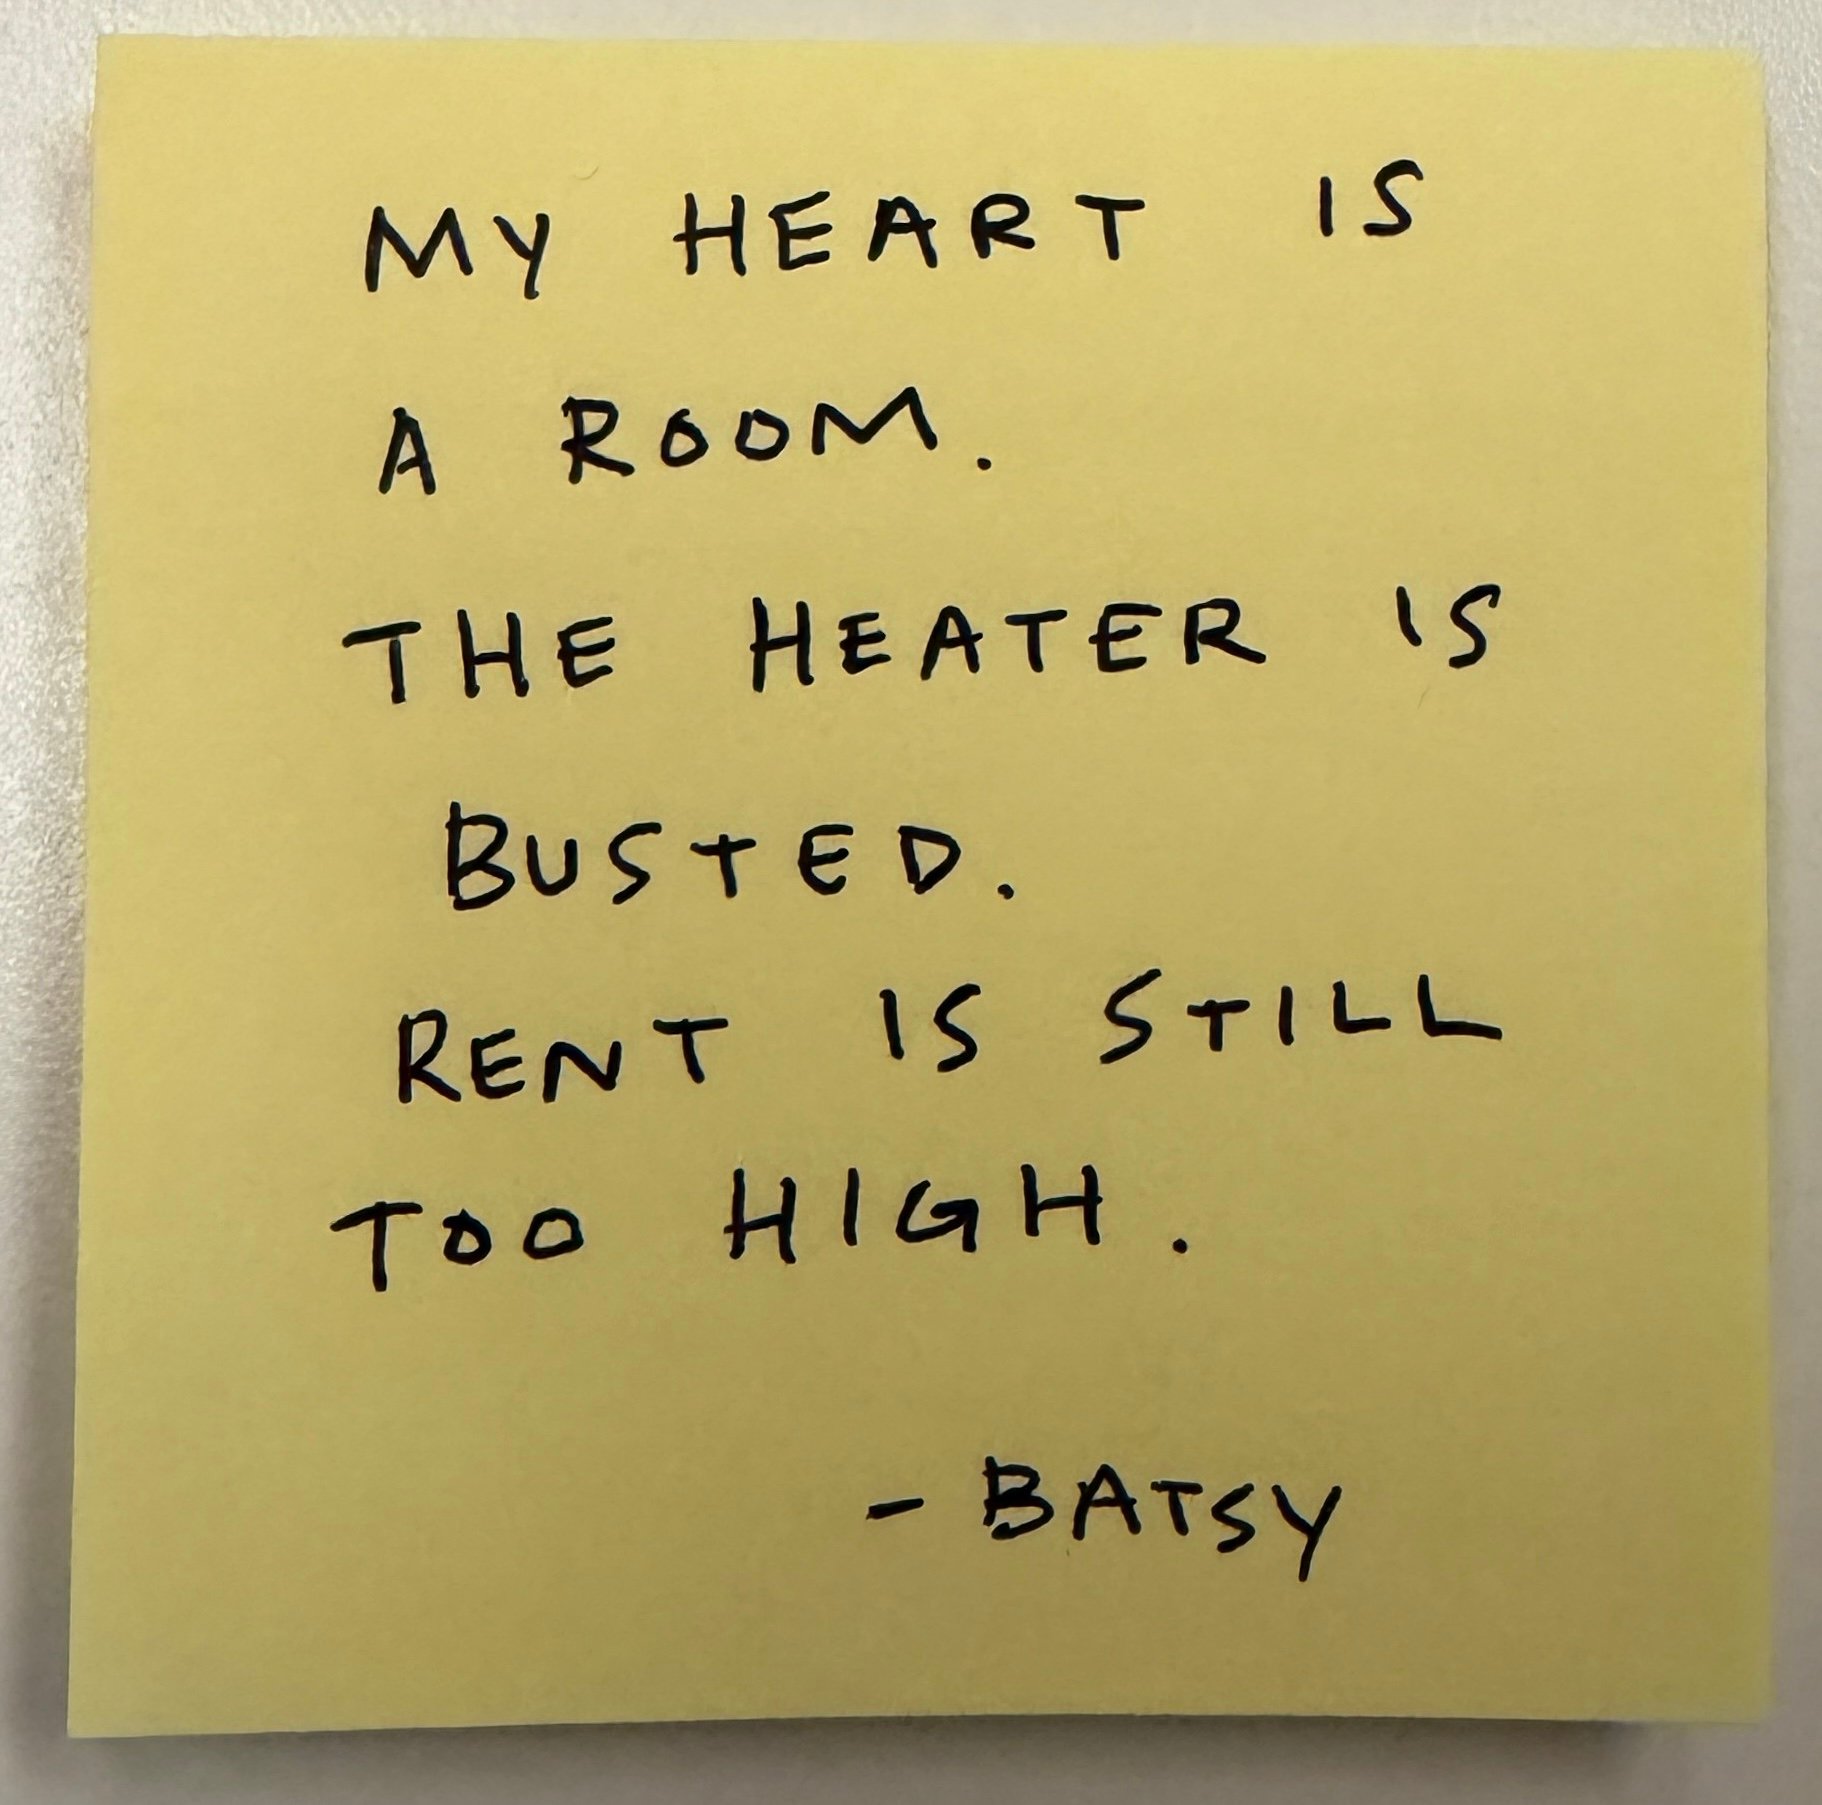 MY HEART IS
A ROOM.
THE HEATER IS
BUSTED.
RENT IS STILL
TOO HIGH.
- BATSY